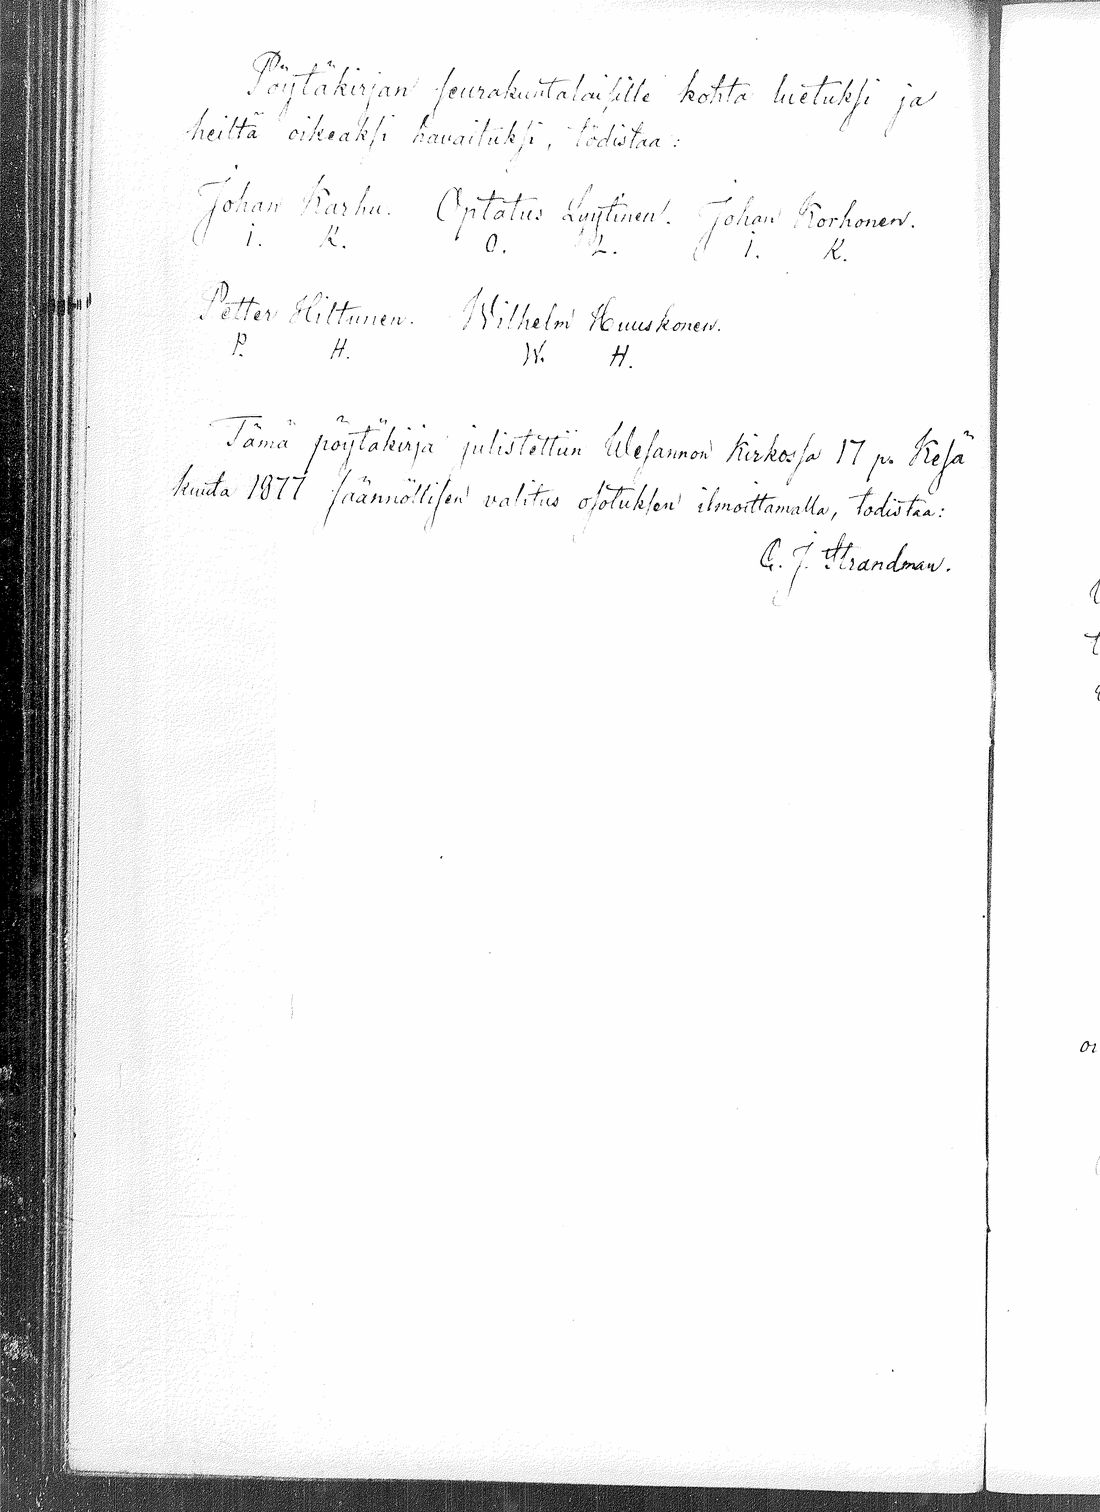 Pöytäkirjan seurakuntalaisille kohta luetuksi ja
heiltä oikeaksi havaituksi, todistaa:
Johan Karhu. Optatus Lyytinen. Johan Korhonen.
I. K. O. L. I. K.
Petter Hiltunen. Wilhelm Huuskonen.
P. H. W. H.
Tämä pöytäkirja julistettiin Wesannon kirkossa 17 p. Kesä
kuuta 1877 säännöllisen valitus osotuksen ilmoittamalla, todistaa:
C. J. Strandman.